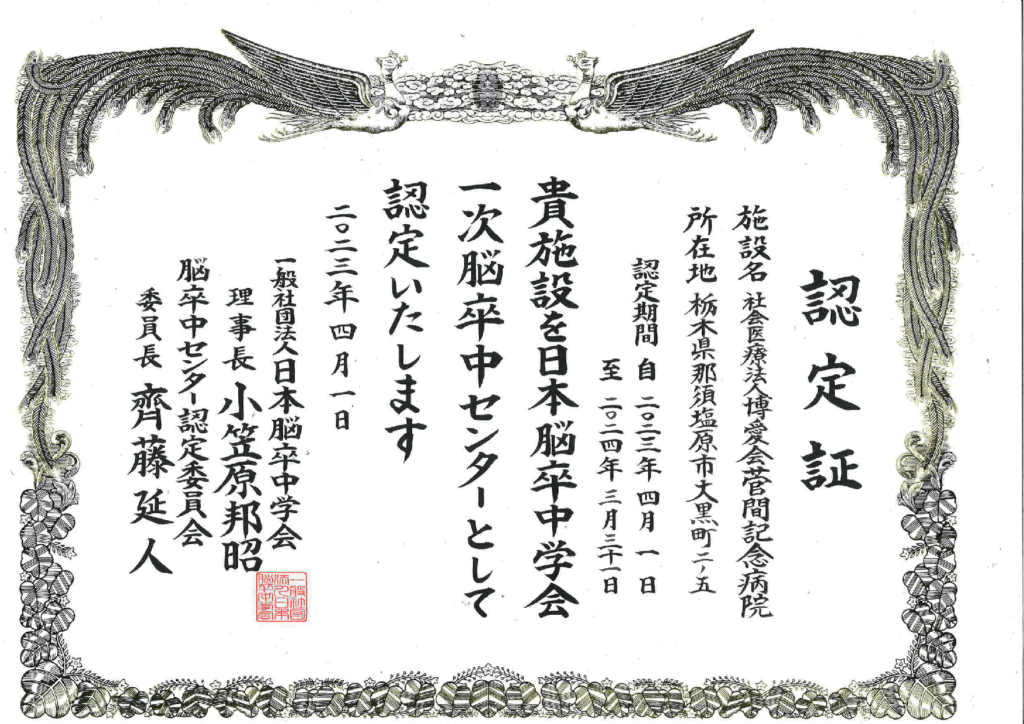 認定証
施設名 社会医療法人博愛会菅間記念病院
所在地 栃木県那須塩原市大黒町二ノ五
認定期間 自 二〇二三年 四月 一日
至 二〇二四年 三月三十一日
貴施設を日本脳卒中学会
一次脳卒中センターとして
認定いたします
二〇二三年 四月 一日
一般社団法人日本脳卒中学会
理事長 小笠原邦昭
脳卒中センター認定委員会
委員長 齊藤延人